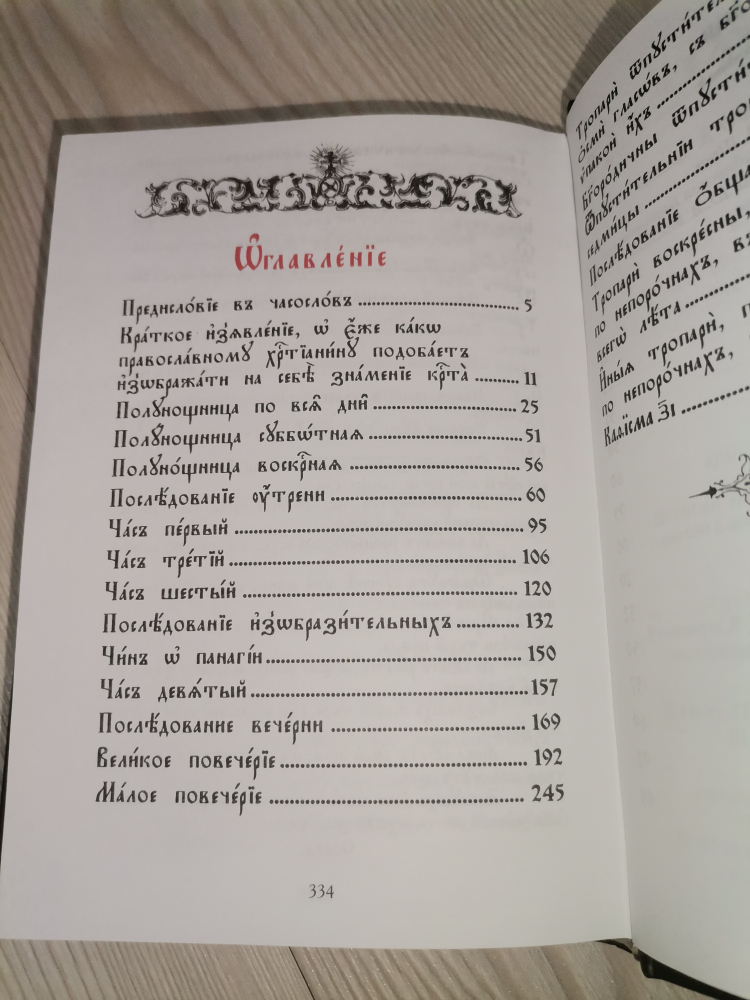 Ѡ҆главле́нїе
Предисло́вїе въ часосло́въ 5
Кра́ткое и҆зѧвле́нїе, ѡ҆ є҆́же ка́кѡ
правосла́вному хрⷭ҇тїани́нꙋ подоба́етъ
и҆зѡбража́ти на себѣ̀ зна́менїе крⷭ҇та̀ 11
Полꙋ́нощница по всѧ̑ дни̑ 25
Полꙋ́нощница сꙋббѡ́тнаѧ 51
Полꙋно́щница воскрⷭ҇наѧ 56
Послѣ́дованїе ѹ҆́трени 60
Ча́съ пе́рвый 95
Ча́съ тре́тїй 106
Ча́съ шесты́й 120
Послѣ́дованїе и҆зѡбрази́тельныхъ 132
Чи́нъ ѡ҆ панагі́и 150
Ча́съ девѧ́тый 157
Послѣ́дование вече́рни 169
Вели́кое повече́рїе 192
Ма́лое повече́рїе 245
334
Тропарѝ ѿпꙋсти́тел
ѻ҆смѝ гласѡ́въ, съ
ѵ҆пакоѝ и҆́хъ
Бг҃оро́дичны ѿпꙋсти́
Ѿпꙋсти́тельнїи тро
седми́цы
Послѣ́дованїе ѻ҆́бща
Тропарѝ воскре́сны,
по непоро́чнахъ, въ
всегѡ̀ лѣ́та
И҆ны́ѧ тропарѝ, п
по непоро́чнахъ,
Каѳі́сма з҃і